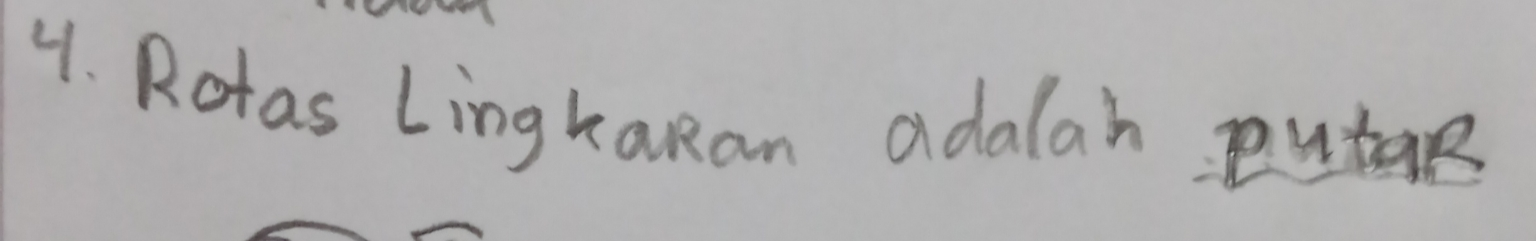 4. Rotas Lingkaran adalah putar